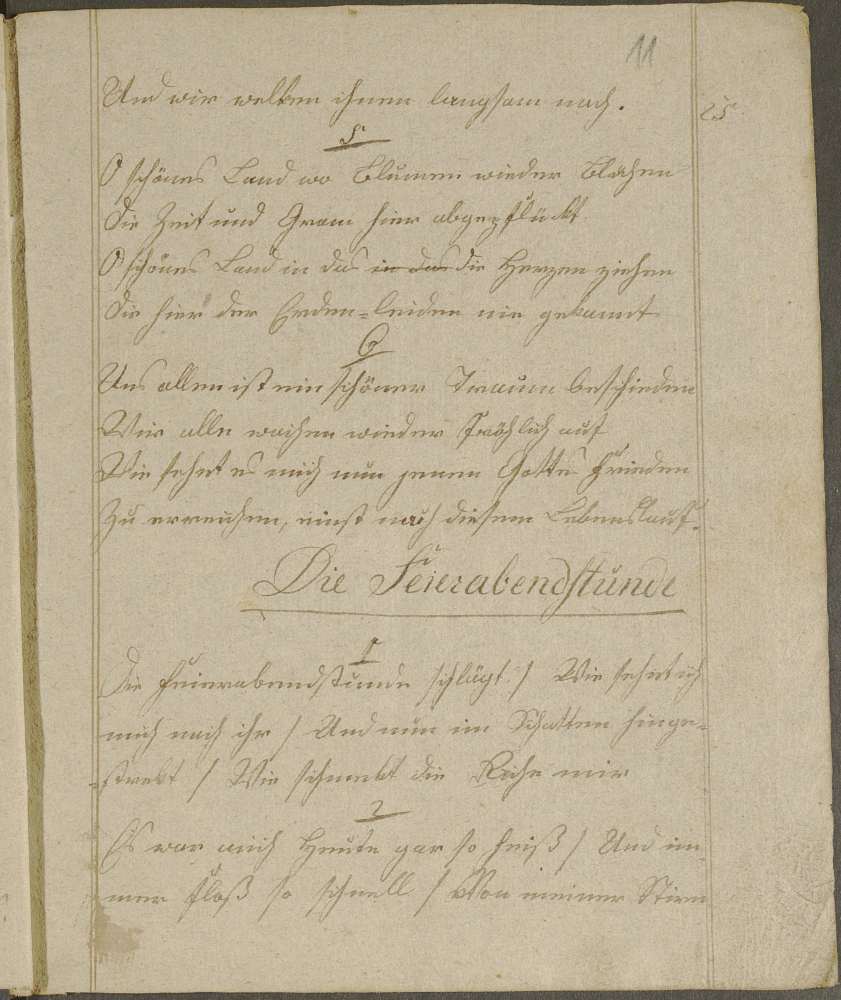 11
Und wir welken ihnen langsam nach.
25
5
O schönes Land wo Blumen wieder Blühen
Die Zeit und Gram hier abgepflückt
O schönes Land in das in das die Herzen ziehen
Die hier der Erden=leiden nie gekannt
6
Uns allen ist ein schöner Traum beschieden
Wir alle wachen wieder Fröhlich auf
Wie sehnt es mich nun jenen Gottes Frieden
Zu erreichen, einst nach diesem Lebenslauf.
Die Feierabendstunde
1
Die Feierabendstunde schlägt / Wie sehnt ich
mich nach ihr / Und nun im Schatten hinge=
=streckt / Wie schmekt die Ruhe mir
2
Es war auch Heute gar so heiß / Und im=
mer floß so schnell / Von meiner Stirn